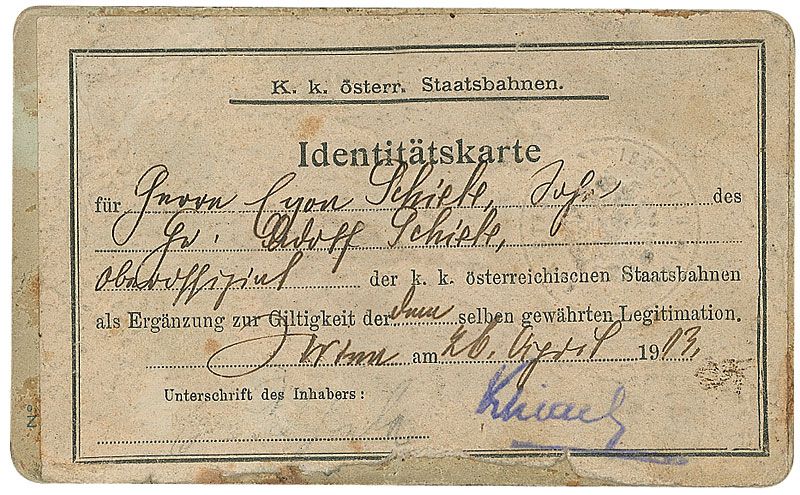 K. k. österr. Staatsbahnen.
Identitätskarte
für Herrn Egon Schiele, Sohn des
Hr. Adolf Schiele,
Oberoffizial der k. k. österreichischen Staatsbahnen
als Ergänzung zur Giltigkeit der dem selben gewährten Legitimation.
Wien am 26. April 1903.
Unterschrift des Inhabers:
No